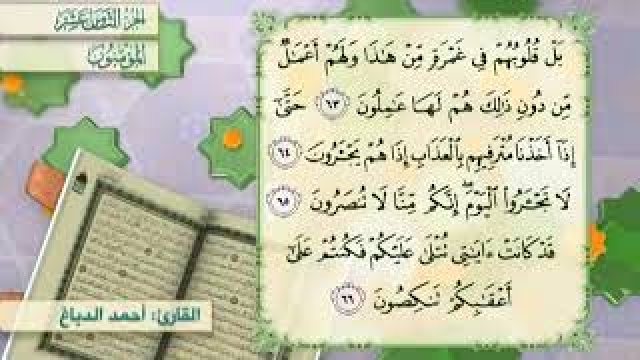 الجزء الثامن عشر
المؤمنون
بَلْ قُلُوبُهُمْ فِي غَمْرَةٍ مِّنْ هَٰذَا وَلَهُمْ أَعْمَالٌ
مِّن دُونِ ذَٰلِكَ هُمْ لَهَا عَٰمِلُونَ ٦٣ حَتَّىٰٓ
إِذَآ أَخَذْنَا مُتْرَفِيهِم بِٱلْعَذَابِ إِذَا هُمْ يَجْـَٔرُونَ ٦٤
لَا تَجْـَٔرُوا۟ ٱلْيَوْمَ ۖ إِنَّكُم مِّنَّا لَا تُنصَرُونَ ٦٥
قَدْ كَانَتْ ءَايَٰتِى تُتْلَىٰ عَلَيْكُمْ فَكُنتُمْ عَلَىٰٓ
أَعْقَٰبِكُمْ تَنكِصُونَ ٦٦
القارئ: أحمد الدباغ